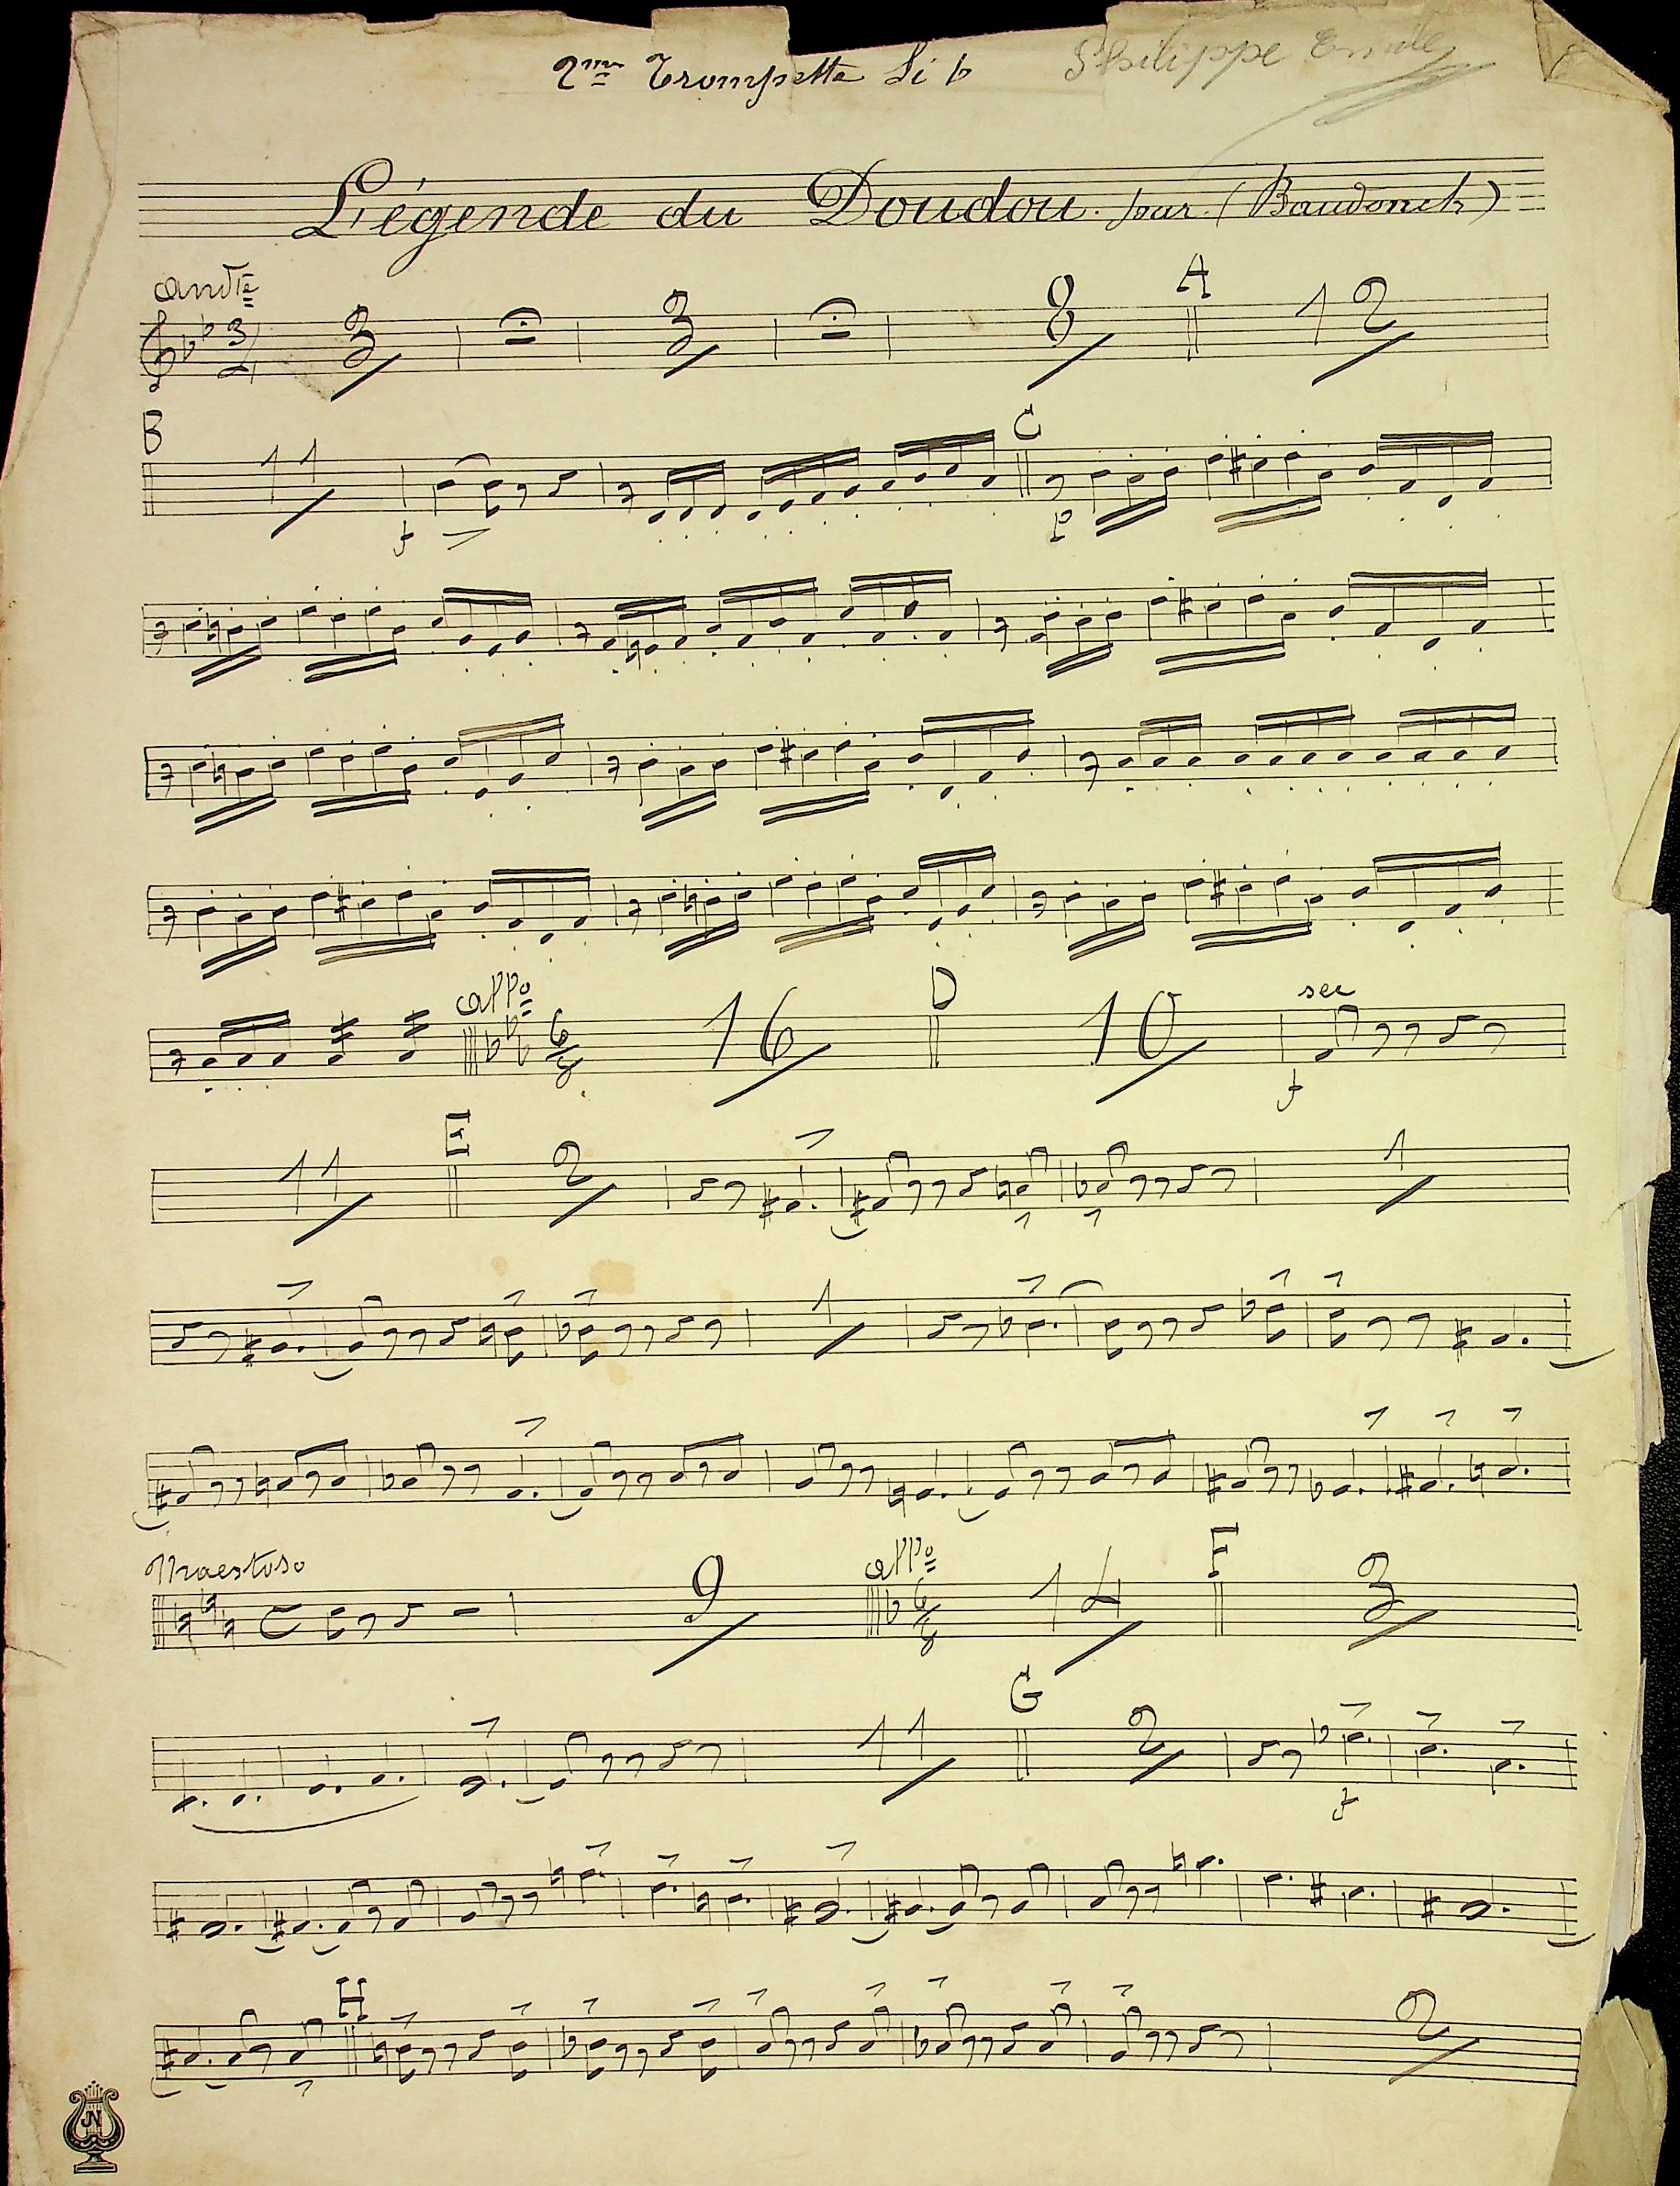 2me Trompette Si b Philippe Emile
Légende du Doudou. par (Baudonck)
andte
3 3 8 A 12
B
11 f C p
allo
6/8 16 D 10 sec f
11 E 2 1
1
Maestoso
9 allo 6/8 14 F 3
11 G 2 f
H 2
JN